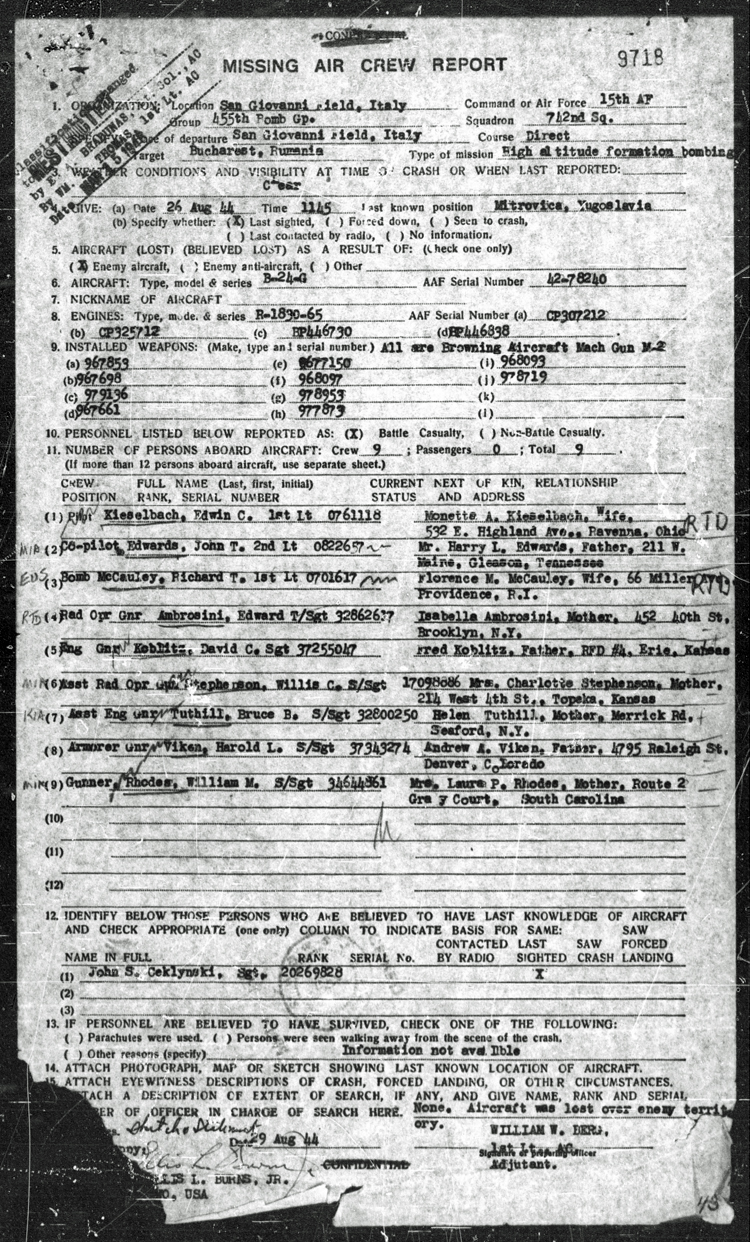 CONFIDENTIAL
MISSING AIR CREW REPORT
9718
1. ORGANIZATION: Location San Giovanni Field, Italy Command or Air Force 15th AF
Group 455th Bomb Gp. Squadron 742nd Sq.
of departure San Giovanni Field, Italy Course Direct
Target Bucharest, Rumania Type of mission High altitude formation bombing
3. WEATHER CONDITIONS AND VISIBILITY AT TIME OF CRASH OR WHEN LAST REPORTED:
Clear
GIVE: (a) Date 26 Aug 44 Time 1145 Last known position Mitrovica, Yugoslavia
(b) Specify whether: (X) Last sighted, ( ) Forced down, ( ) Seen to crash,
( ) Last contacted by radio, ( ) No information.
5. AIRCRAFT (LOST) (BELIEVED LOST) AS A RESULT OF: (Check one only)
(X) Enemy aircraft, ( ) Enemy anti-aircraft, ( ) Other
6. AIRCRAFT: Type, model & series B-24-G AAF Serial Number 42-78240
7. NICKNAME OF AIRCRAFT
8. ENGINES: Type, model & series R-1830-65 AAF Serial Number (a) CP307212
(b) CP325712 (c) BP446730 (d) BP446838
9. INSTALLED WEAPONS: (Make, type and serial number) All are Browning Aircraft Mach Gun M-2
(a) 967853 (e) 9677150 (i) 968093
(b) 967698 (f) 968097 (j) 978719
(c) 979196 (g) 978953 (k)
(d) 967661 (h) 977873 (l)
10. PERSONNEL LISTED BELOW REPORTED AS: (X) Battle Casualty, ( ) Non-Battle Casualty.
11. NUMBER OF PERSONS ABOARD AIRCRAFT: Crew 9 ; Passengers 0 ; Total 9
(If more than 12 persons aboard aircraft, use separate sheet.)
CREW FULL NAME (Last, first, initial) CURRENT NEXT OF KIN, RELATIONSHIP
POSITION RANK, SERIAL NUMBER STATUS AND ADDRESS
(1) Pilot Kieselbach, Edwin C. 1st Lt 0761118 Monette A. Kieselbach, Wife, RTD
532 E. Highland Ave., Ravenna, Ohio
(2) Co-pilot Edwards, John T. 2nd Lt 0822657 Mr. Harry L. Edwards, Father, 211 W.
Maine, Gleason, Tennessee
EUS (3) Bomb McCauley, Richard T. 1st Lt 0701617 Florence M. McCauley, Wife, 66 Miller Ave RTD
Providence, R.I.
RTD (4) Rad Opr Gnr Ambrosini, Edward T/Sgt 32862637 Isabella Ambrosini, Mother, 452 40th St,
Brooklyn, N.Y.
(5) Eng Gnr Koblitz, David C. Sgt 37255047 Fred Koblitz, Father, RFD #4, Erie, Kansas
(6) Asst Rad Opr Gnr Stephenson, Willis C. S/Sgt 17098086 Mrs. Charlotte Stephenson, Mother,
214 West 4th St., Topeka, Kansas
KIA (7) Asst Eng Gnr Tuthill, Bruce B. S/Sgt 32800250 Helen Tuthill, Mother, Merrick Rd,
Seaford, N.Y.
(8) Armorer Gnr Viken, Harold L. S/Sgt 37343274 Andrew A. Viken, Father, 4795 Raleigh St,
Denver, Colorado
(9) Gunner, Rhodes, William M. S/Sgt 34644561 Mrs. Laura P. Rhodes, Mother, Route 2
Gray Court, South Carolina
(10)
(11)
(12)
12. IDENTIFY BELOW THOSE PERSONS WHO ARE BELIEVED TO HAVE LAST KNOWLEDGE OF AIRCRAFT
AND CHECK APPROPRIATE (one only) COLUMN TO INDICATE BASIS FOR SAME: SAW
CONTACTED LAST SAW FORCED
NAME IN FULL RANK SERIAL No. BY RADIO SIGHTED CRASH LANDING
(1) John S. Ceklynski, Sgt, 20269828 X
(2)
(3)
13. IF PERSONNEL ARE BELIEVED TO HAVE SURVIVED, CHECK ONE OF THE FOLLOWING:
( ) Parachutes were used. ( ) Persons were seen walking away from the scene of the crash.
( ) Other reasons (specify) Information not available
14. ATTACH PHOTOGRAPH, MAP OR SKETCH SHOWING LAST KNOWN LOCATION OF AIRCRAFT.
15. ATTACH EYEWITNESS DESCRIPTIONS OF CRASH, FORCED LANDING, OR OTHER CIRCUMSTANCES.
ATTACH A DESCRIPTION OF EXTENT OF SEARCH, IF ANY, AND GIVE NAME, RANK AND SERIAL
BER OF OFFICER IN CHARGE OF SEARCH HERE. None. Aircraft was lost over enemy territ
ory.
Date 29 Aug 44
WILLIAM W. BERG,
1st Lt, AC
Signature of preparing officer
Adjutant.
CONFIDENTIAL
LLIS L. BURNS, JR.
WO, USA